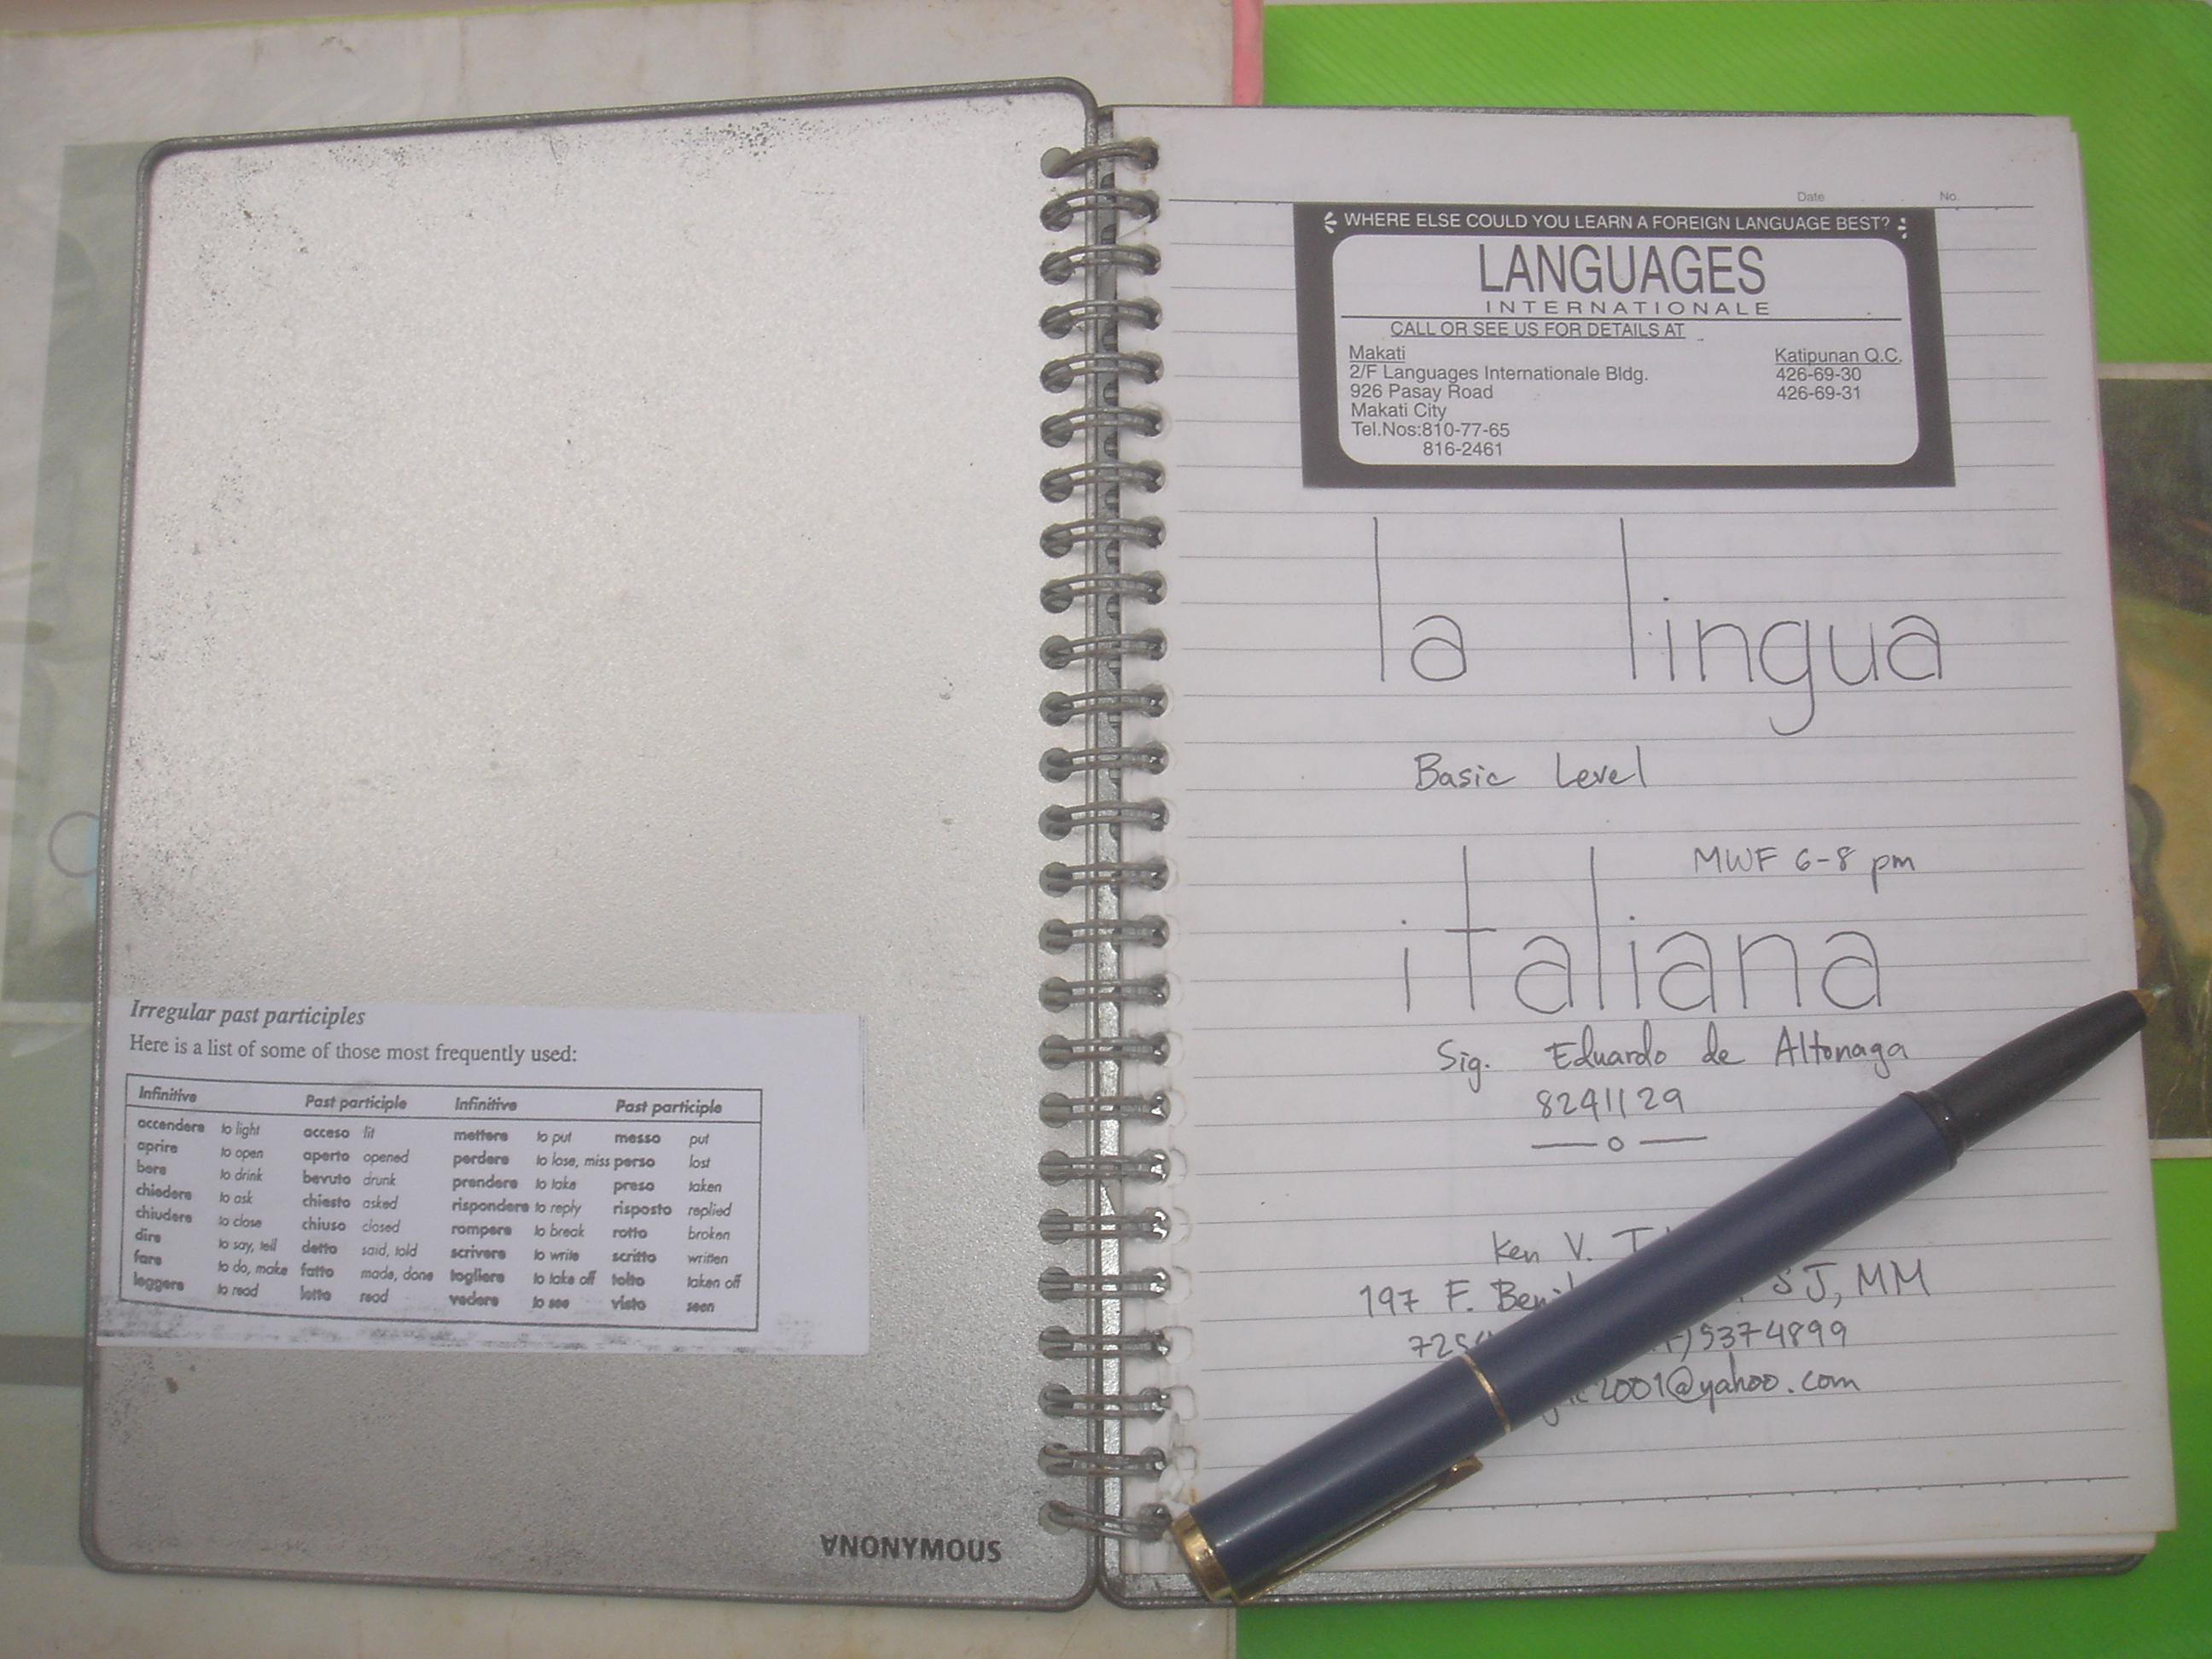 Irregular past participles
Here is a list of some of those most frequently used:
Infinitive Past participle Infinitive Past participle
accendere to light acceso lit mettere to put messo put
aprire to open aperto opened perdere to lose, miss perso lost
bere to drink bevuto drunk prendere to take preso taken
chiedere to ask chiesto asked rispondere to reply risposto replied
chiudere to close chiuso closed rompere to break rotto broken
dire to say, tell detto said, told scrivere to write scritto written
fare to do, make fatto made, done togliere to take off tolto taken off
leggere to read letto read vedere to see visto seen
ANONYMOUS
Date No.
WHERE ELSE COULD YOU LEARN A FOREIGN LANGUAGE BEST?
LANGUAGES
INTERNATIONALE
CALL OR SEE US FOR DETAILS AT
Makati Katipunan Q.C.
2/F Languages Internationale Bldg. 426-69-30
926 Pasay Road 426-69-31
Makati City
Tel.Nos:810-77-65
816-2461
la lingua
Basic Level
MWF 6-8 pm
italiana
Sig. Eduardo de Altonaga
8241129
Ken V.
197 F. SJ, MM
5374899
2001@yahoo.com